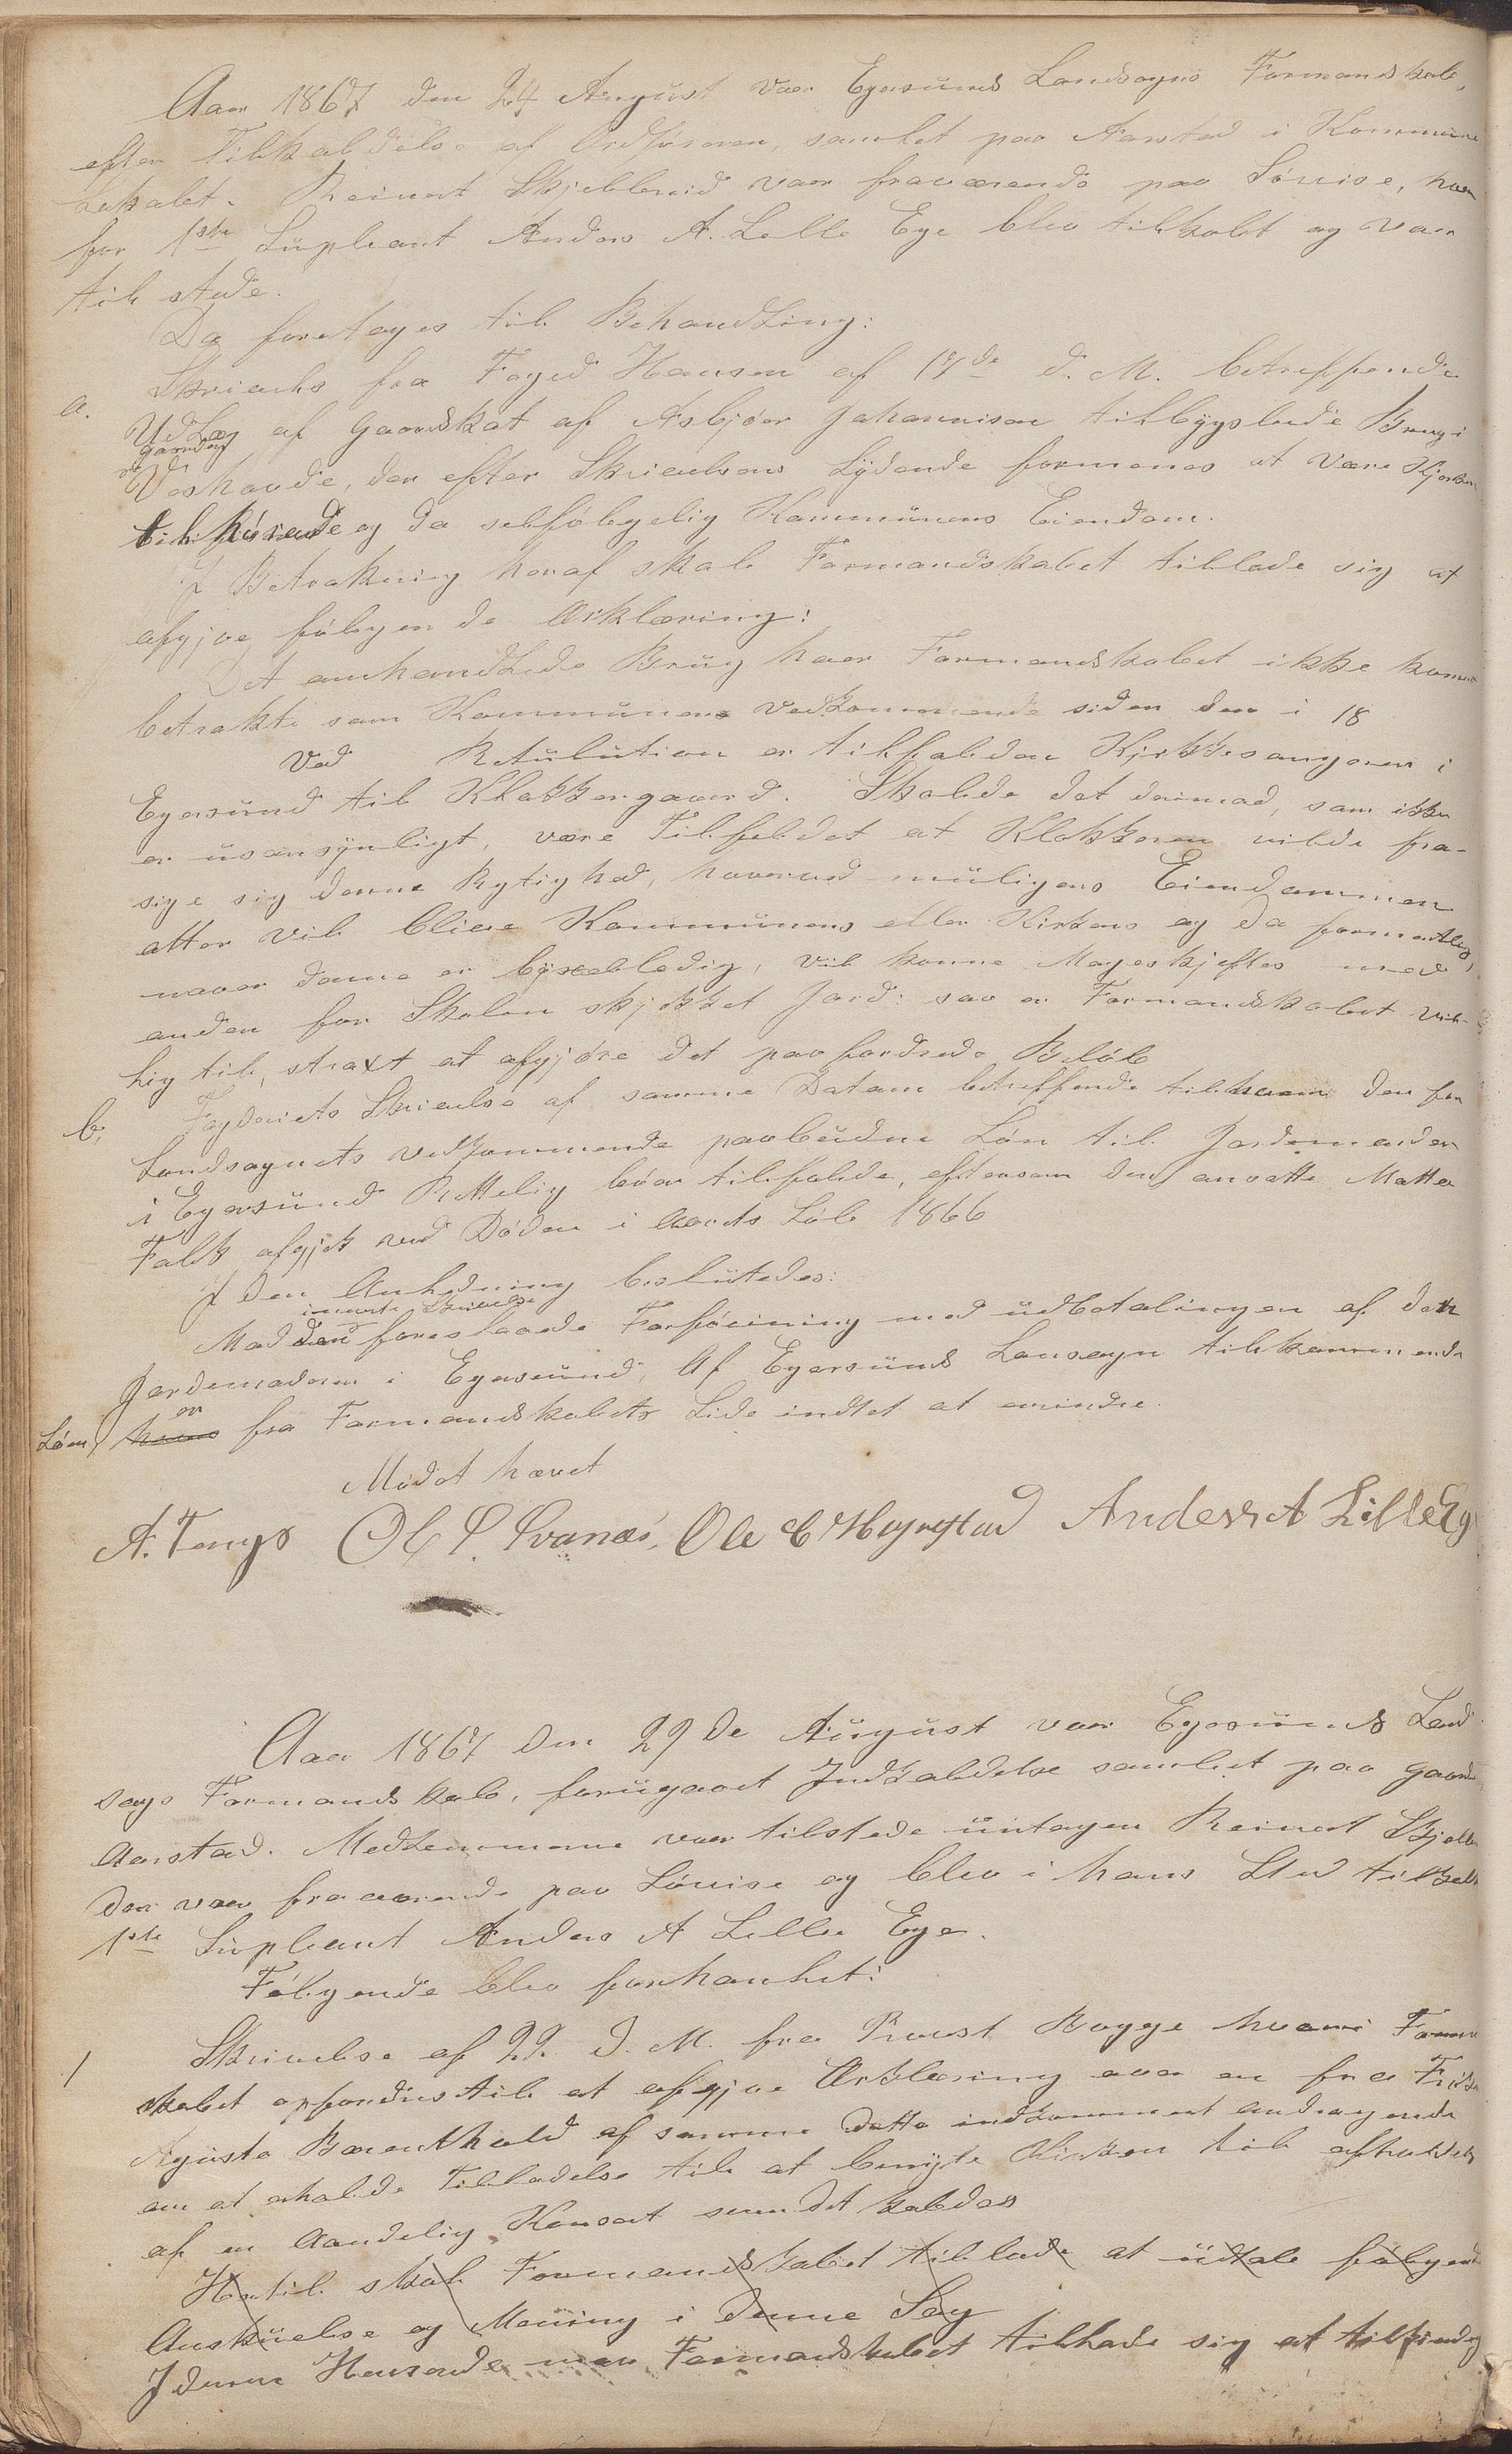 Aar 1867 den 24 August var Egersunds Landsogns Formandskab,
efter Tilkaldelse af Ordføreren, samlet paa Aarstad i Kommune
lokalet. Reinert Skjelbreid var fraværende paa Søreise, hvor
for 1ste Supleant Anders A. Lille Eye blev tilkalt og var
til stede.
Da foretages til Behandling:
a. Skrievels fra Foged Hansen af 17de d. M. betreffende
Udlæg af Gaardskat af Asbjør Johannison tilbygslede Brug i
Gaarden
Veshovde, der efter Skrievelsens Lydende formenes at være Kjerken
tilhørende og da selføbgelig Kommunens Eiendom.
I Betrakning heraf skal Formandskabet tillade sig at
afgjøe følgende Erklæring:
Det anhandlede Brug haer Formandskabet ikke kunnet
betrakte som Kommunens Vedkommende siden den i 18
Ved Resulution er tilfalden Kjerkesangeren i
Egersund til Klokkergaard. Skulde det derimod, som ikke
er usansynligt, være Tilfeldet at Klokkeren vilde fra-
sige sig denne Rytighed, hvorved muligens Eiendommen
atter vil blive Kommunens eller Kirkens og da formentlig,
naar denne er byxelledig, vil kunne Mageskjeftes med
anden for Skolen skjikket Jord: saa er Formandskabet vil-
lig til, straxt at afgjøre det paafordrede Beløb
b; Fogderiets Skrievelse af samme Datum betreffende til hvem den for
Landsognets vedkommende paabudne Løn til Jordemoderen
i Egersund Rettelig bør tilfalde, eftersom den ansatte Mette
Falk afgjik ved Døden i Aarets Løb 1866
I den Anledning besluttedes:
inmerte Skrivelse
Mod den foreslaaede Forføining med udbetalingen af den
Jordemoderen i Egersund, Af Egersunds Lansogn tilkommende
Løn, er fra Formandskabets Side indtet at erindre.
Mødet hævet
A. Tengs Ol P. Svanæs, Ole C Hegrestad Anders A Lille Ey
Aar 1867 den 29de August var Egersunds Land
sogs Formandskab, forugaaet Indkaldelse samlet paa Gaarden
Aarstad. Medlemmene var tilstede untagen Reinert Skjelb
der var fraværende paa Søreise og blev i hans Sted tilkalt
1ste Supleant Anders A Lille Eye.
Følgende blev forhanlet:
1 Skrivelse af 22 d. M. fra Provst Bugge hvori Formand
skabet opfordres til at afgjøe Erklæring over en fra Frøken
Agusta Barenthold af samme Datto indkommet andragende
om at erholde Tilladelse til at benyte Kirken til afholdels
af en Aandelig Konsert som det kaldes
Hertil skal Formandskabet tillade at udtale følgende
Anskuelse og Mening i denne Sag
I denne Henseende maa Formandskabet tillade sig at tilfiendeg